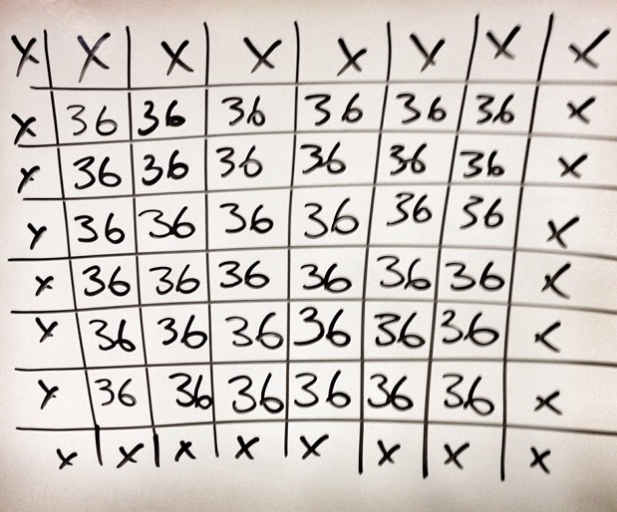 X X X X X X X X
X 36 36 36 36 36 36 X
X 36 36 36 36 36 36 X
X 36 36 36 36 36 36 X
X 36 36 36 36 36 36 X
X 36 36 36 36 36 36 X
X 36 36 36 36 36 36 X
X X X X X X X X